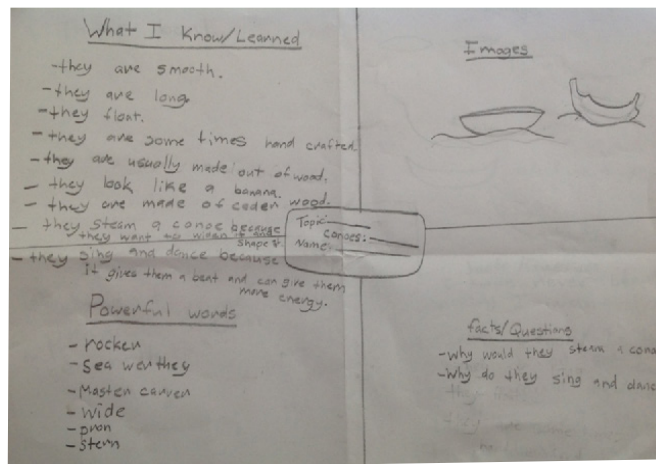 What I Know/Learned
-they are smooth.
-they are long
-they float.
-they are some times hand crafted
-they are usually made out of wood.
- they look like a banana.
- they are made of ceder wood.
- they steam a canoe because
they want to widen it and
shape it.
- they sing and dance because
It gives them a beat and can give them
more energy.
Powerful words
- rocker
- Sea worthey
- Master carver
- wide
- pron
- stern
Images
Topic
Canoes:
Name:
facts/Questions
-Why would they steam a cano
-Why do they sing and danc